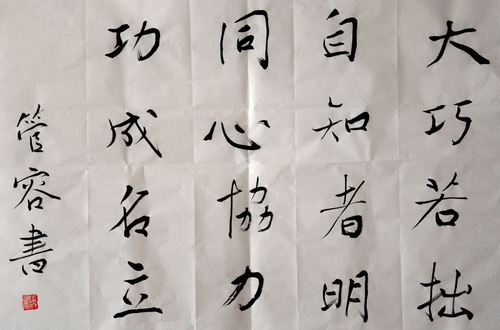 大巧若拙
自知者明
同心協力
功成名立
管容書